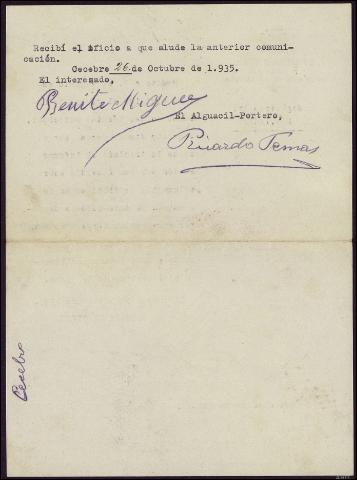 Recibí el oficio a que alude la anterior comuni-
cación.
Cecebre 26 de Octubre de 1.935.
El interesado,
Benito Miguez
El Alguacil-Portero,
Ricardo Pernas
Cecebre